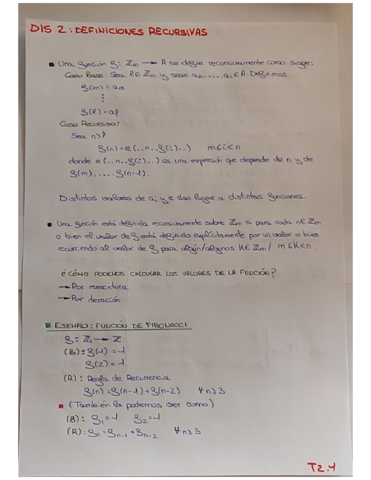 DIS 2: DEFINICIONES RECURSIVAS
Una función f: ℤm → A se define recursivamente como sigue:
Caso Base: Sea p ∈ ℤm y sean am, ..., ap ∈ A. Definimos
f(m) = am
⋮
f(p) = ap
Caso Recursivo:
Sea n > p
f(n) = e(..n..f(i)..) m ≤ i < n
donde e(..n..f(i)..) es una expresión que depende de n y de
f(m), ..., f(n-1).
Distintos valores de ai y e dan lugar a distintas funciones.
Una función está definida recursivamente sobre ℤm si para cada n ∈ ℤm
o bien el valor de f está definido explícitamente por un valor o bien
recurriendo al valor de f para algún/algunos k ∈ ℤm / m ≤ k < n.
¿CÓMO PODEMOS CALCULAR LOS VALORES DE LA FUNCIÓN?
→ Por recursión.
→ Por iteración.
EJEMPLO: FUNCIÓN DE FIBONACCI
f: ℤ1 → ℤ
(B): f(1) = 1
f(2) = 1
(R): Regla de Recurrencia
f(n) = f(n-1) + f(n-2) ∀n ≥ 3
(También la podemos ver como)
(B): f1 = 1 f2 = 1
(R): fn = fn-1 + fn-2 ∀n ≥ 3
T2.1